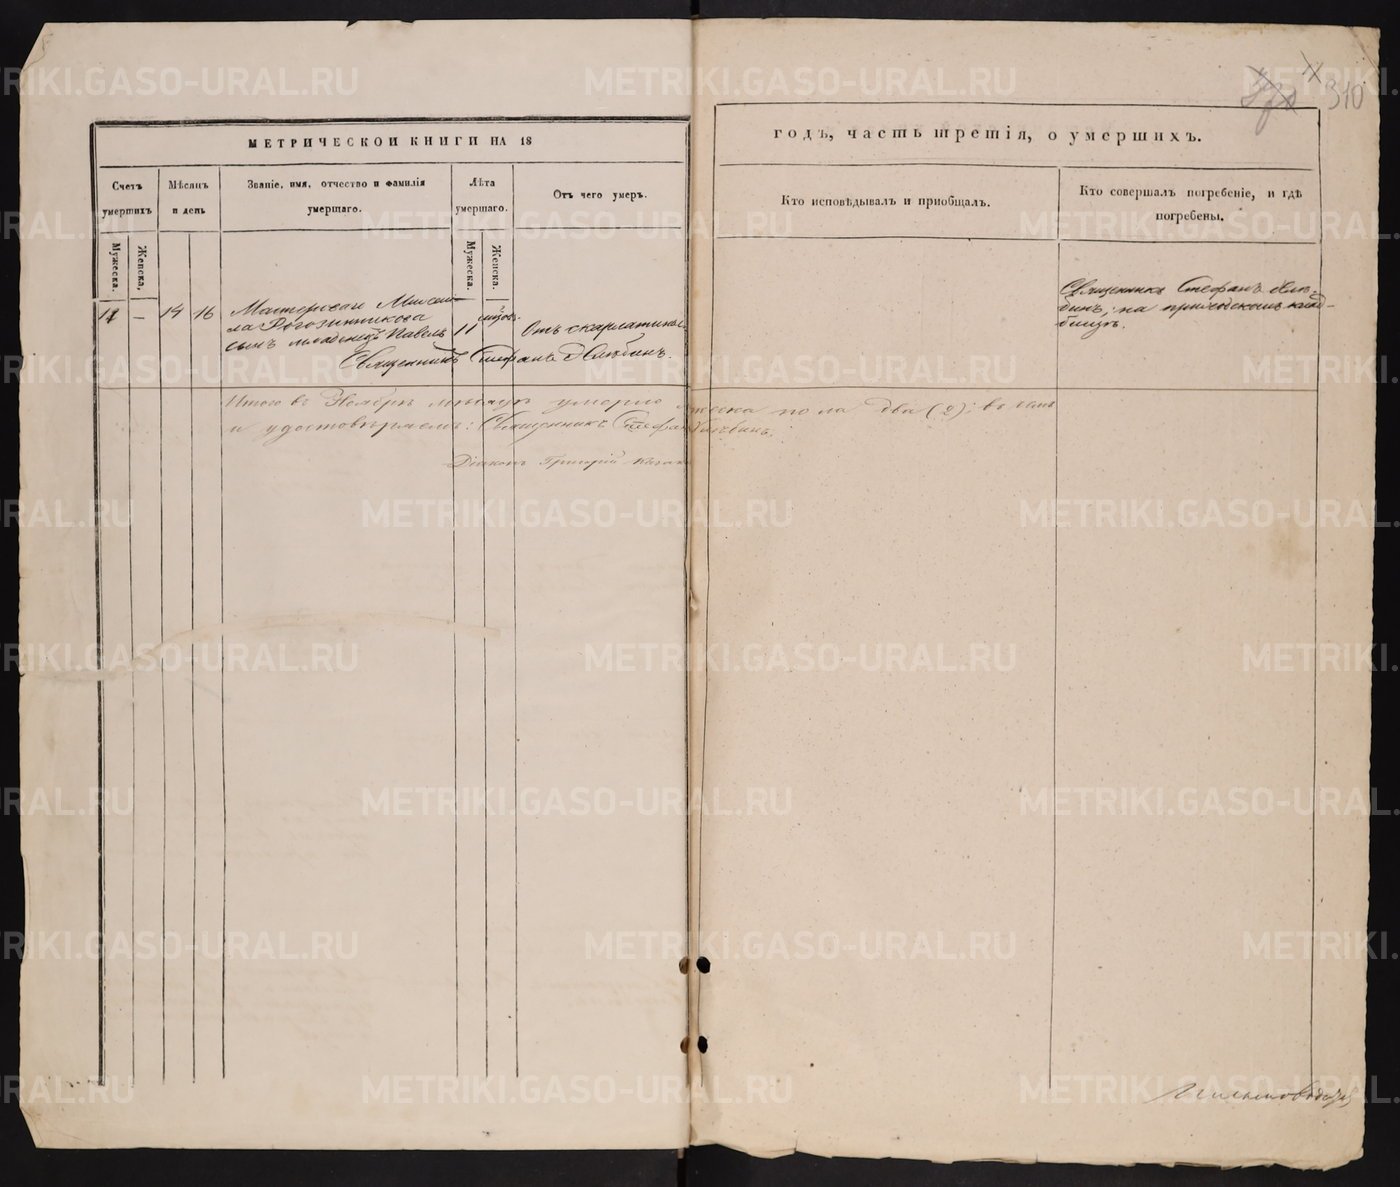 310
МЕТРИЧЕСКОЙ КНИГИ НА 18
годъ, часть третія, о умершихъ.
Счетъ умершихъ
Мѣсяцъ и день
Званіе, имя, отчество и фамилія умершаго.
Лѣта умершаго.
Отъ чего умеръ.
Кто исповѣдывалъ и приобщалъ.
Кто совершалъ погребеніе, и гдѣ погребены.
Мужеска.
Женска,
Мужеска.
Женска.
11
—
14
16
Мастероваго Михаи-
ла Рогозинникова
сынъ младенецъ Павелъ
11
мѣсяц.
Отъ скарлатины
Священникъ Стефанъ Хлѣбинъ.
Священникъ Стефанъ Хлѣ-
бинъ, на приходскомъ клад-
бищѣ.
Итого въ Ноябрѣ мѣсяцѣ умерло мужеска пола два (2); въ чемъ
и удостовѣряемъ: Священникъ Стефанъ Хлѣбинъ.
Діаконъ Григорій
METRIKI.GASO-URAL.RU